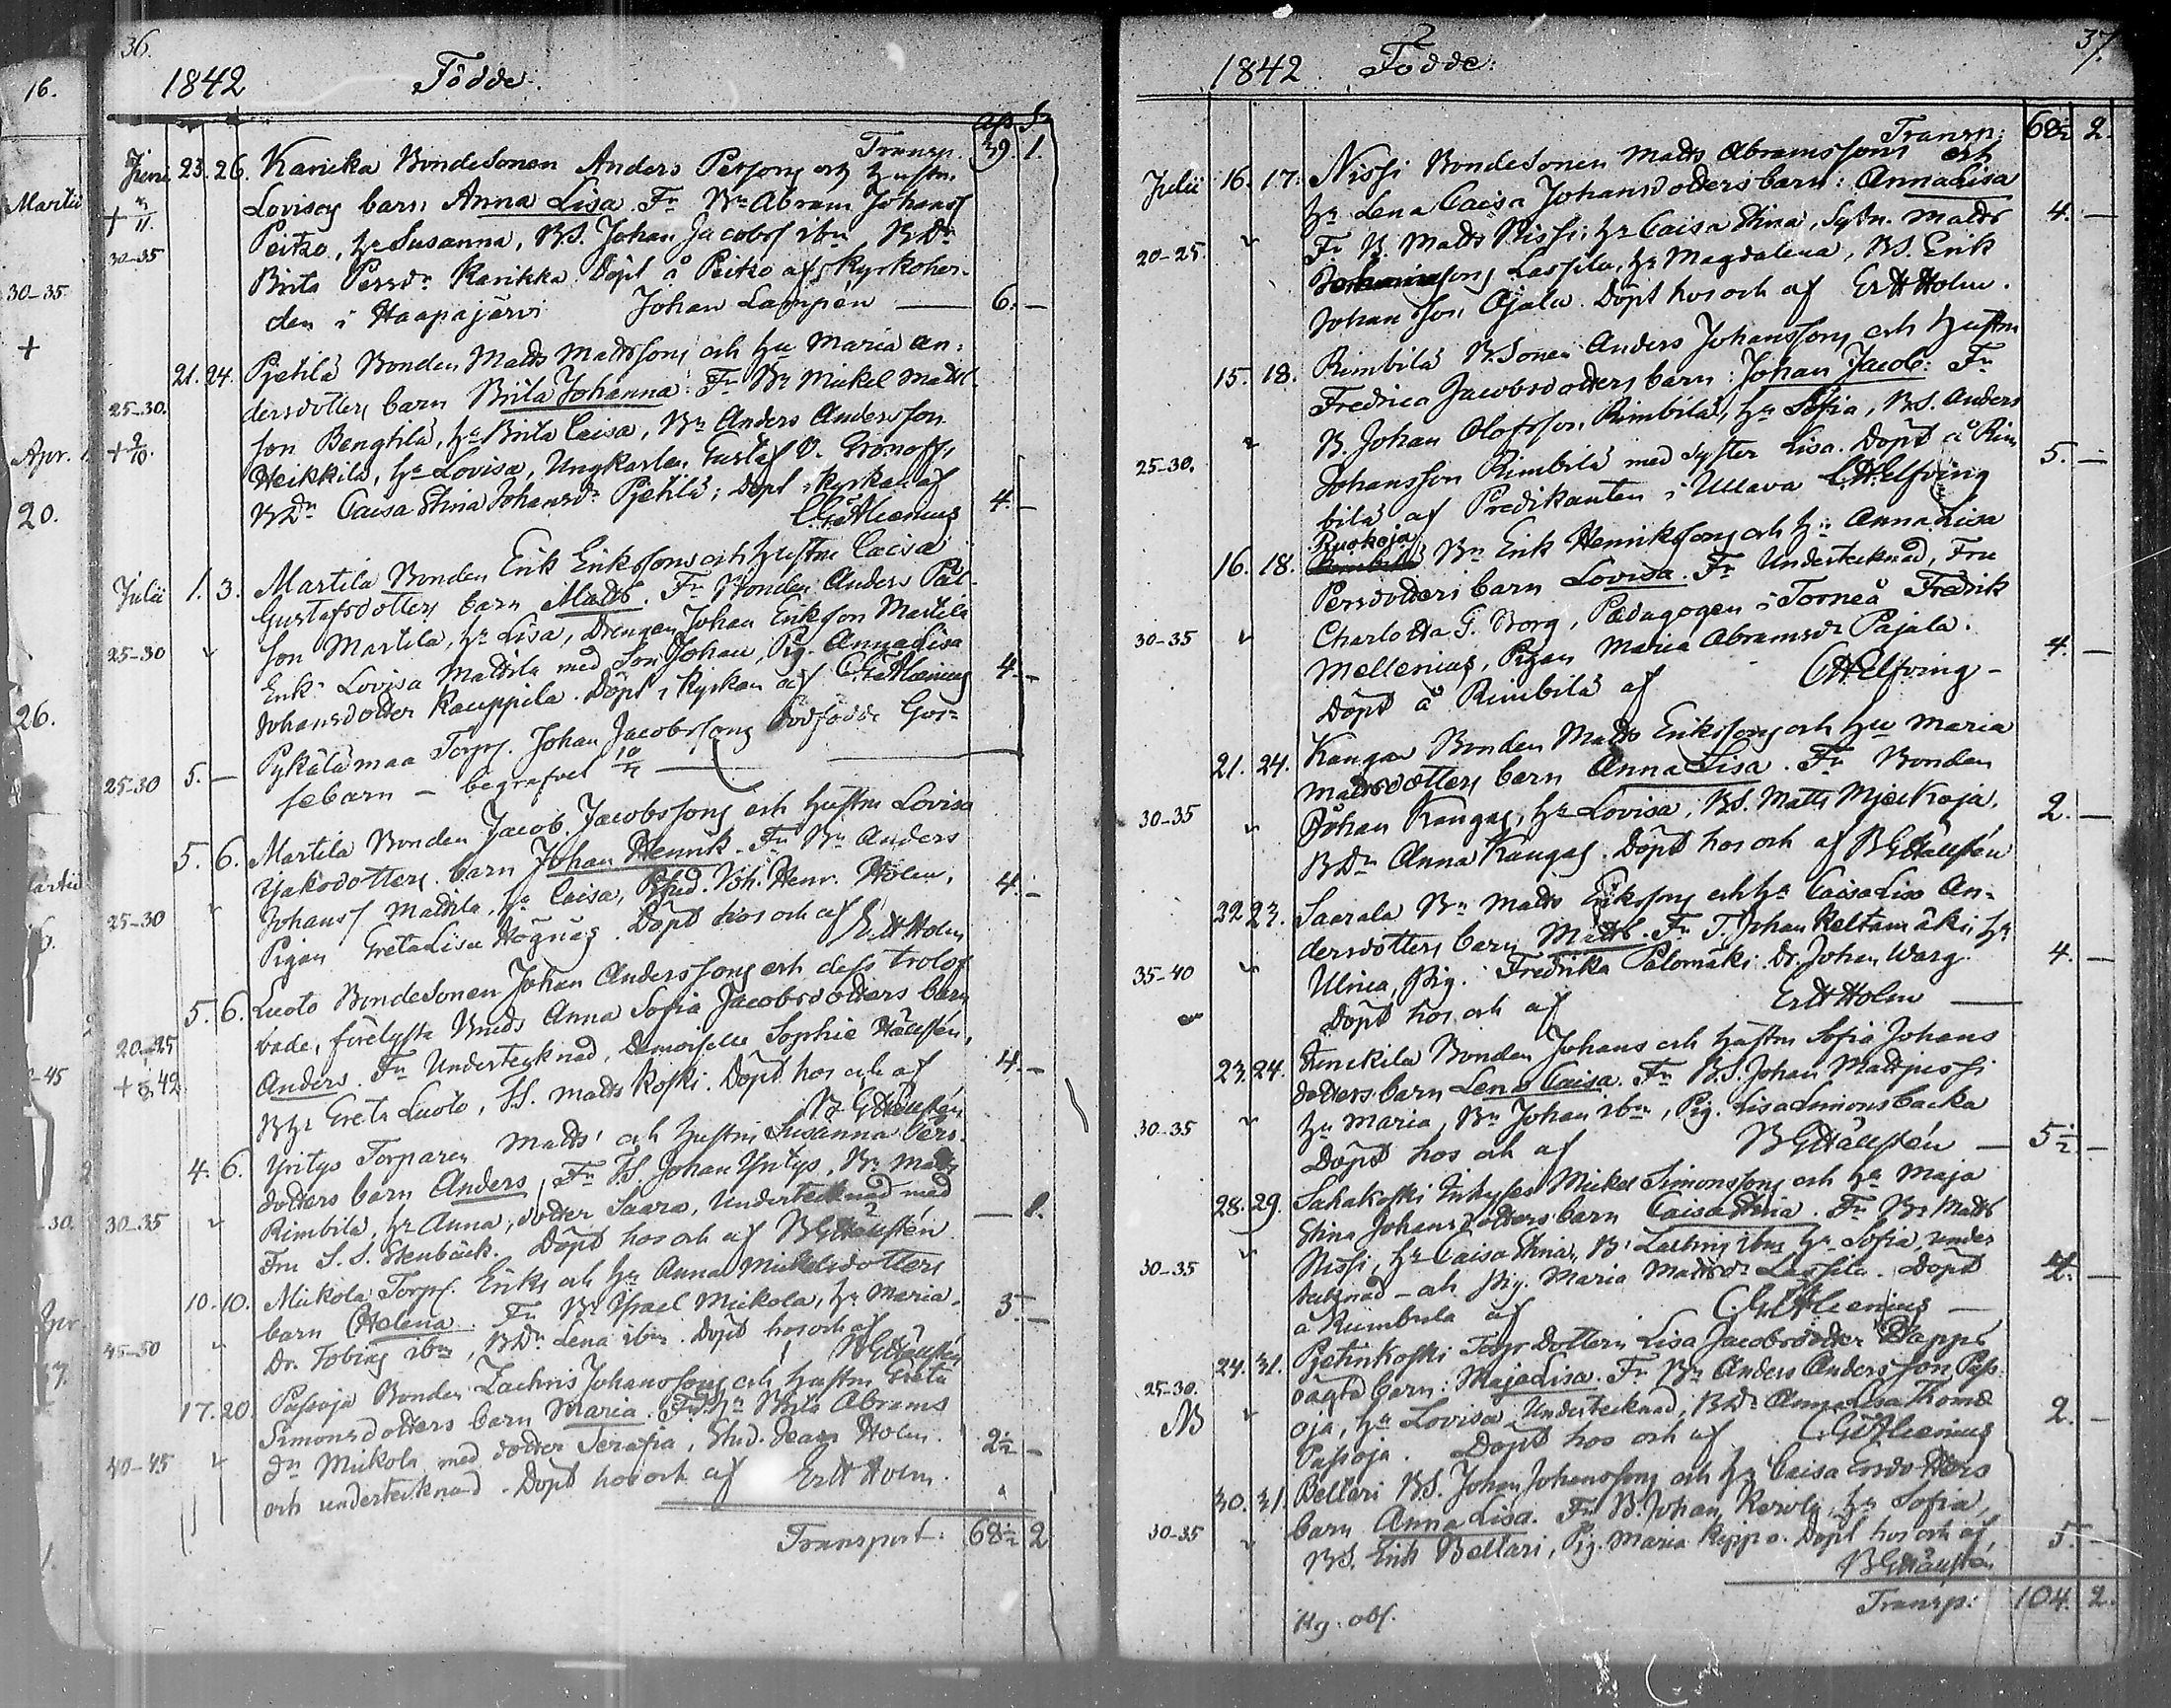 36.
1842 Födde.
Transp. 39. 1.
Junii 23. 26. Karicka Bondesonen Anders Perssons och hustru
Lovisas barn Anna Lisa. Fr Bn Abram Johanss
Peitzo, hu Susanna, BS. Johan Jacobss ibm BDr
30-35 Brita Persdr Karikka. Döpt å Peitzo af Kyrkoher-
den i Haapajärvi Johan Lampén 6. -
21. 24. Pjetilä Bonden Matts Mattssons och hu Maria An-
25-30. dersdotters barn Brita Johanna. Fr Bn Mickel Matts-
son Bengtilä, hu Brita Caisa, Bn Anders Andersson
Heikkilä, hu Lovisa, Ungkarlen Gustaf O. Gronoff,
BDr Caisa Stina Johansdr Pjetilä; Döpt i kyrkan af
C. G. Alcenius 4. -
Julii 1. 3. Martila Bonden Erik Erikssons och hustru Caisa
Gustafsdotters barn Matts. Fr Bonden Anders Pål-
25-30 son Martila, hu Lisa, Drengen Johan Eriksson Martila
Enk. Lovisa Mattila med Son Johan, Pig. Anna Lisa
Johansdotter Kauppila. Döpt i kyrkan af C. G. Alcenius 4. -
25-30 5. - Pykälämaa Torp. Johan Jacobssons dödfödde Gos-
sebarn - begrafvet 10/7
5. 6. Martila Bonden Jacob Jacobssons och hustru Lovisa
Isaksdotters barn Johan Henrik. Fr Bn Anders
25-30 Johanss Mattila, hu Caisa, Stud. Joh. Henr. Holm,
Pigan Greta Lisa Högnäs. Döpt hos och af E. H. Holm 4. -
5. 6. Luoto Bondesonen Johan Anderssons och dess trolof-
20-25 vade, förelysta Bruds Anna Sofia Jacobsdotters barn
Anders. Fr Undertecknad, Demoiselle Sophie Hällstén,
BHu Greta Luoto, TS. Matts Koski. Döpt hos och af 4. -
B G Hällstén
4. 6. Yritys Torparen Matts' och hustru Susanna Pers-
dotters barn Anders, Fr TS. Johan Yritys, Bn Matts
30-35 Rimbilä, hu Anna, dotter Saara, Undertecknad med
Fru S. S. Stenbäck. Döpt hos och af B G Hällstén - 1.
10. 10. Mickola Torp. Eriks och hu Anna Mickelsdotters
barn Helena. Fr Bn Israel Mickola, hu Maria, 5. -
45-50 Dr. Tobias ibm, BDr Lena ibm. Döpt hos och af
B G Hällstén
17. 20. Passoja Bonden Zachris Johanssons och hustru Greta
Simonsdotters barn Maria. Fr Hu Brita Abrams
40-45 dr Mickola med dotter Serafia, Stud. Jean Holm 2½ -
och undertecknad. Döpt hos och af Er H Holm.
Transport: 68½ 2
37.
1842 Födde:
Transp: 68½ 2.
Julii 16. 17. Nissi Bondesonen Matts Abramssons och
hu Lena Caisa Johansdotters barn: Anna Lisa 4. -
20-25. Fr B. Matts Nissi, hu Caisa Stina, Sytn. Matts
Johansson Lassila, hu Magdalena, BS. Erik
Johansson Ojala. Döpt hos och af Er H Holm.
15. 18. Rimbilä B.Sonen Anders Johanssons och hustru
Fredrica Jacobsdotters barn: Johan Jacob: Fr
B. Johan Olofsson Rimbilä, hu Sofia, BS. Anders
25-30. Johansson Rimbilä med Syster Lisa. Döpt å Rim- 5. -
bilä af Predikanten i Ullava C. H. Elfving
Ruokoja
16. 18. Bn Erik Henrikssons och hu Anna Lisa
Persdotters barn Lovisa. Fr Undertecknad, Fru
30-35 Charlotta G. Borg, Pædagogen i Torneå Fredrik
Mellenius, Pigan Maria Abramsdr Pajala. 4. -
Döpt å Rimbilä af C H Elfving -
21. 24. Kangas Bonden Matts Erikssons och hu Maria
Mattsdotters barn Anna Lisa. Fr Bonden
30-35 Johan Kangas, hu Lovisa, BS. Matts Myllyoja, 2. -
BDr Anna Kangas. Döpt hos och af B G Hällstén
22. 23. Saarala Bn Matts Erikssons och hu Caisa Lisa An-
dersdotters barn Matts. Fr T. Johan Keltamäki, hu
35-40 Ulrica, Pig. Fredrika Palomäki. Dr. Johan Warg. 4. -
Döpt hos och af Er H Holm
23. 24. Johans och hustru Sofia Johans
dotters barn Lena Caisa. Fr B.S. Johan Mattjussi
30-35 hu Maria, Bn Johan ibm, Pig. Lisa Simonsbacka
Döpt hos och af B G Hällstén - 5½ -
28. 29. Sahakoski Inhyses Mickel Simonssons och hu Maja
Stina Johansdotters barn Caisa Stina. Fr Bn Matts
30-35 Nissi, hu Caisa Stina, ibm hu Sofia, under
tecknad - och Pig. Maria Mattsdr Lassila. Döpt -
å Rimbilä af C. G. Alcenius -
24. 31. Pjetinkoski Torpdottern Lisa Jacobsdotter
25-30. oägta barn: Maja Lisa. Fr Bn Anders Andersson Pass-
NB oja, hu Lovisa, Undertecknad, BDr Anna Lisa Thomæ 2. -
Passoja. Döpt hos och af C. G. Alcenius
30. 31. Bellari BS. Johan Johanssons och hu Caisa Ersdotters
barn Anna Lisa. Fr B. Johan Rervola, hu Sofia,
30-35 BS. Erik Bellari, Pig. Maria Keppo. Döpt hos och af 5. -
B G Hällstén
Transp: 104. 2.